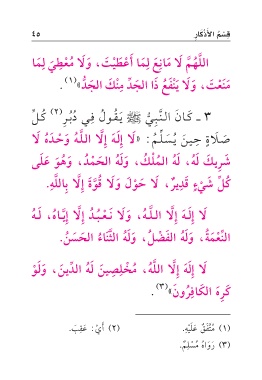 قِسْمُ الْأَذْكَارِ
٤٥
اللَّهُمَّ لَا مَانِعَ لِمَا أَعْطَيْتَ، وَلَا مُعْطِيَ لِمَا
مَنَعْتَ، وَلَا يَنْفَعُ ذَا الْجَدِّ مِنْكَ الْجَدُّ»(١).
٣ ـ كَانَ النَّبِيُّ ﷺ يَقُولُ فِي دُبُرِ(٢) كُلِّ
صَلَاةٍ حِينَ يُسَلِّمُ: «لَا إِلَهَ إِلَّا اللَّهُ وَحْدَهُ لَا
شَرِيكَ لَهُ، لَهُ الْمُلْكُ، وَلَهُ الْحَمْدُ، وَهُوَ عَلَى
كُلِّ شَيْءٍ قَدِيرٌ، لَا حَوْلَ وَلَا قُوَّةَ إِلَّا بِاللَّهِ.
لَا إِلَهَ إِلَّا اللَّهُ، وَلَا نَعْبُدُ إِلَّا إِيَّاهُ، لَهُ
النِّعْمَةُ، وَلَهُ الْفَضْلُ، وَلَهُ الثَّنَاءُ الْحَسَنُ.
لَا إِلَهَ إِلَّا اللَّهُ، مُخْلِصِينَ لَهُ الدِّينَ، وَلَوْ
كَرِهَ الْكَافِرُونَ»(٣).
(١) مُتَّفَقٌ عَلَيْهِ. (٢) أَيْ: عَقِبَ.
(٣) رَوَاهُ مُسْلِمٌ.